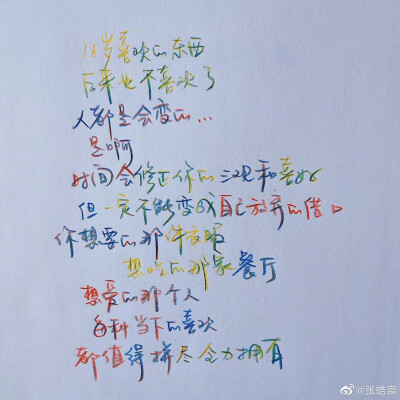 18岁喜欢的东西
后来也不喜欢了
人都是会变的...
是啊
时间会修正你的三观和喜好
但一定不能变成自己放弃的借口
你想要的那件衣服
想吃的那家餐厅
想爱的那个人
每种当下的喜欢
都值得拼尽全力拥有
@张皓宸